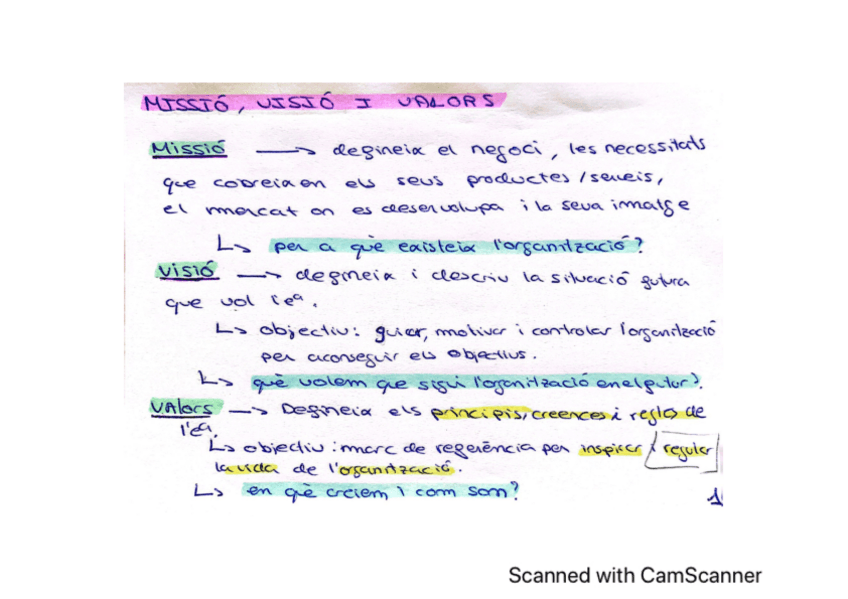 MISSIÓ, VISIÓ I VALORS
Missió → defineix el negoci, les necessitats
que cobreixen els seus productes/serveis,
el mercat on es desenvolupa i la seva imatge
↳ per a què existeix l'organització?
Visió → defineix i descriu la situació futura
que vol l'eª.
↳ objectiu: guiar, motivar i controlar l'organització
per aconseguir els objectius.
↳ què volem que sigui l'organització en el futur?.
Valors → Defineix els principis, creences i regles de
l'eª.
↳ objectiu: marc de referència per inspirar i regular
la vida de l'organització.
↳ en què creiem i com som?
1
Scanned with CamScanner